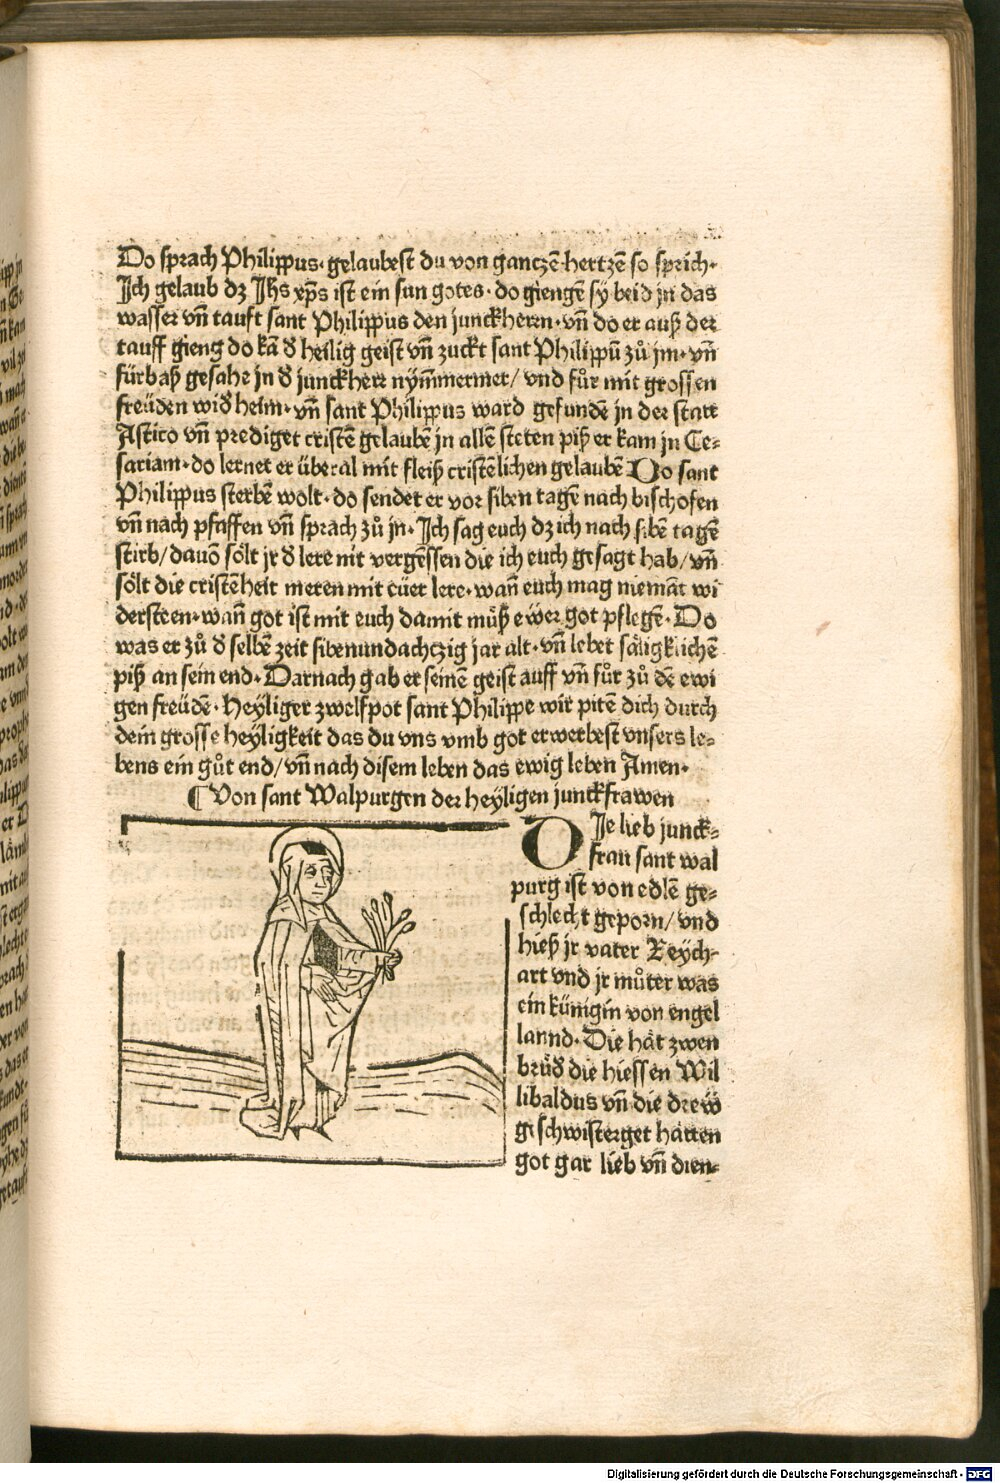 Do sprach Philippus· gelaubest du von gantzē hertzē so sprich·
Ich gelaub dz Jhs xp̄s ist ein sun gotes· do giengē sy beid in das
wasser vn̄ tauft sant Philippus den junckherrn· vn̄ do er auß der
tauff gieng do kā d̕ heilig geist vn̄ zuckt sant Philippū zů jm· vn̄
fürbaß gesahe jn d̕ junckherr nym̄mermer/ vnd fůr mit grossen
freüden wid̕ heim· vn̄ sant Philippus ward gefundē jn der statt
Astito vn̄ prediget cristē gelaubē jn allē steten piß er kam jn Ce⸗
sariam· do lernet er überal mit fleiß cristēlichen gelaubē Do sant
Philippus sterbē wolt· do sendet er vor siben tagē nach bischofen
vn̄ nach pfaffen vn̄ sprach zů jn· Ich sag euch dz ich nach sibē tagē
stirb/ dauō sölt jr d̕ lere nit vergessen die ich euch gesagt hab/ vn̄
sölt die cristēheit meren mit eüer lere· wan̄ euch mag niemāt wi
dersteen· wan̄ got ist mit euch damit můß ewer got pflegē· Do
was er zů d̕ selbē zeit sibenundachczig jar alt· vn̄ lebet säligklichē
piß an sein end· Darnach gab er seinē geist auff vn̄ fůr zů dē ewi
gen freüdē· Heyliger zwelfpot sant Philippe wir pitē dich durch
dein grosse heyligkeit das du vns vmb got erwerbest vnsers le⸗
bens ein gůt end/ vn̄ nach disem leben das ewig leben Amen·
¶ Von sant Walpurgen der heyligen junckfrawen
DIe lieb junck⸗
frau sant wal
purg ist von edlē ge⸗
schlecht geporn/ vnd
hieß jr vater Reych⸗
art vnd jr můter was
ein künigin von engel
lannd· Die hāt zwen
brüd̕ die hiessen Wil
libaldus vn̄ die drew
geschwisterget hatten
got gar lieb vn̄ dien⸗
Digitalisierung gefördert durch die Deutsche Forschungsgemeinschaft - DFG